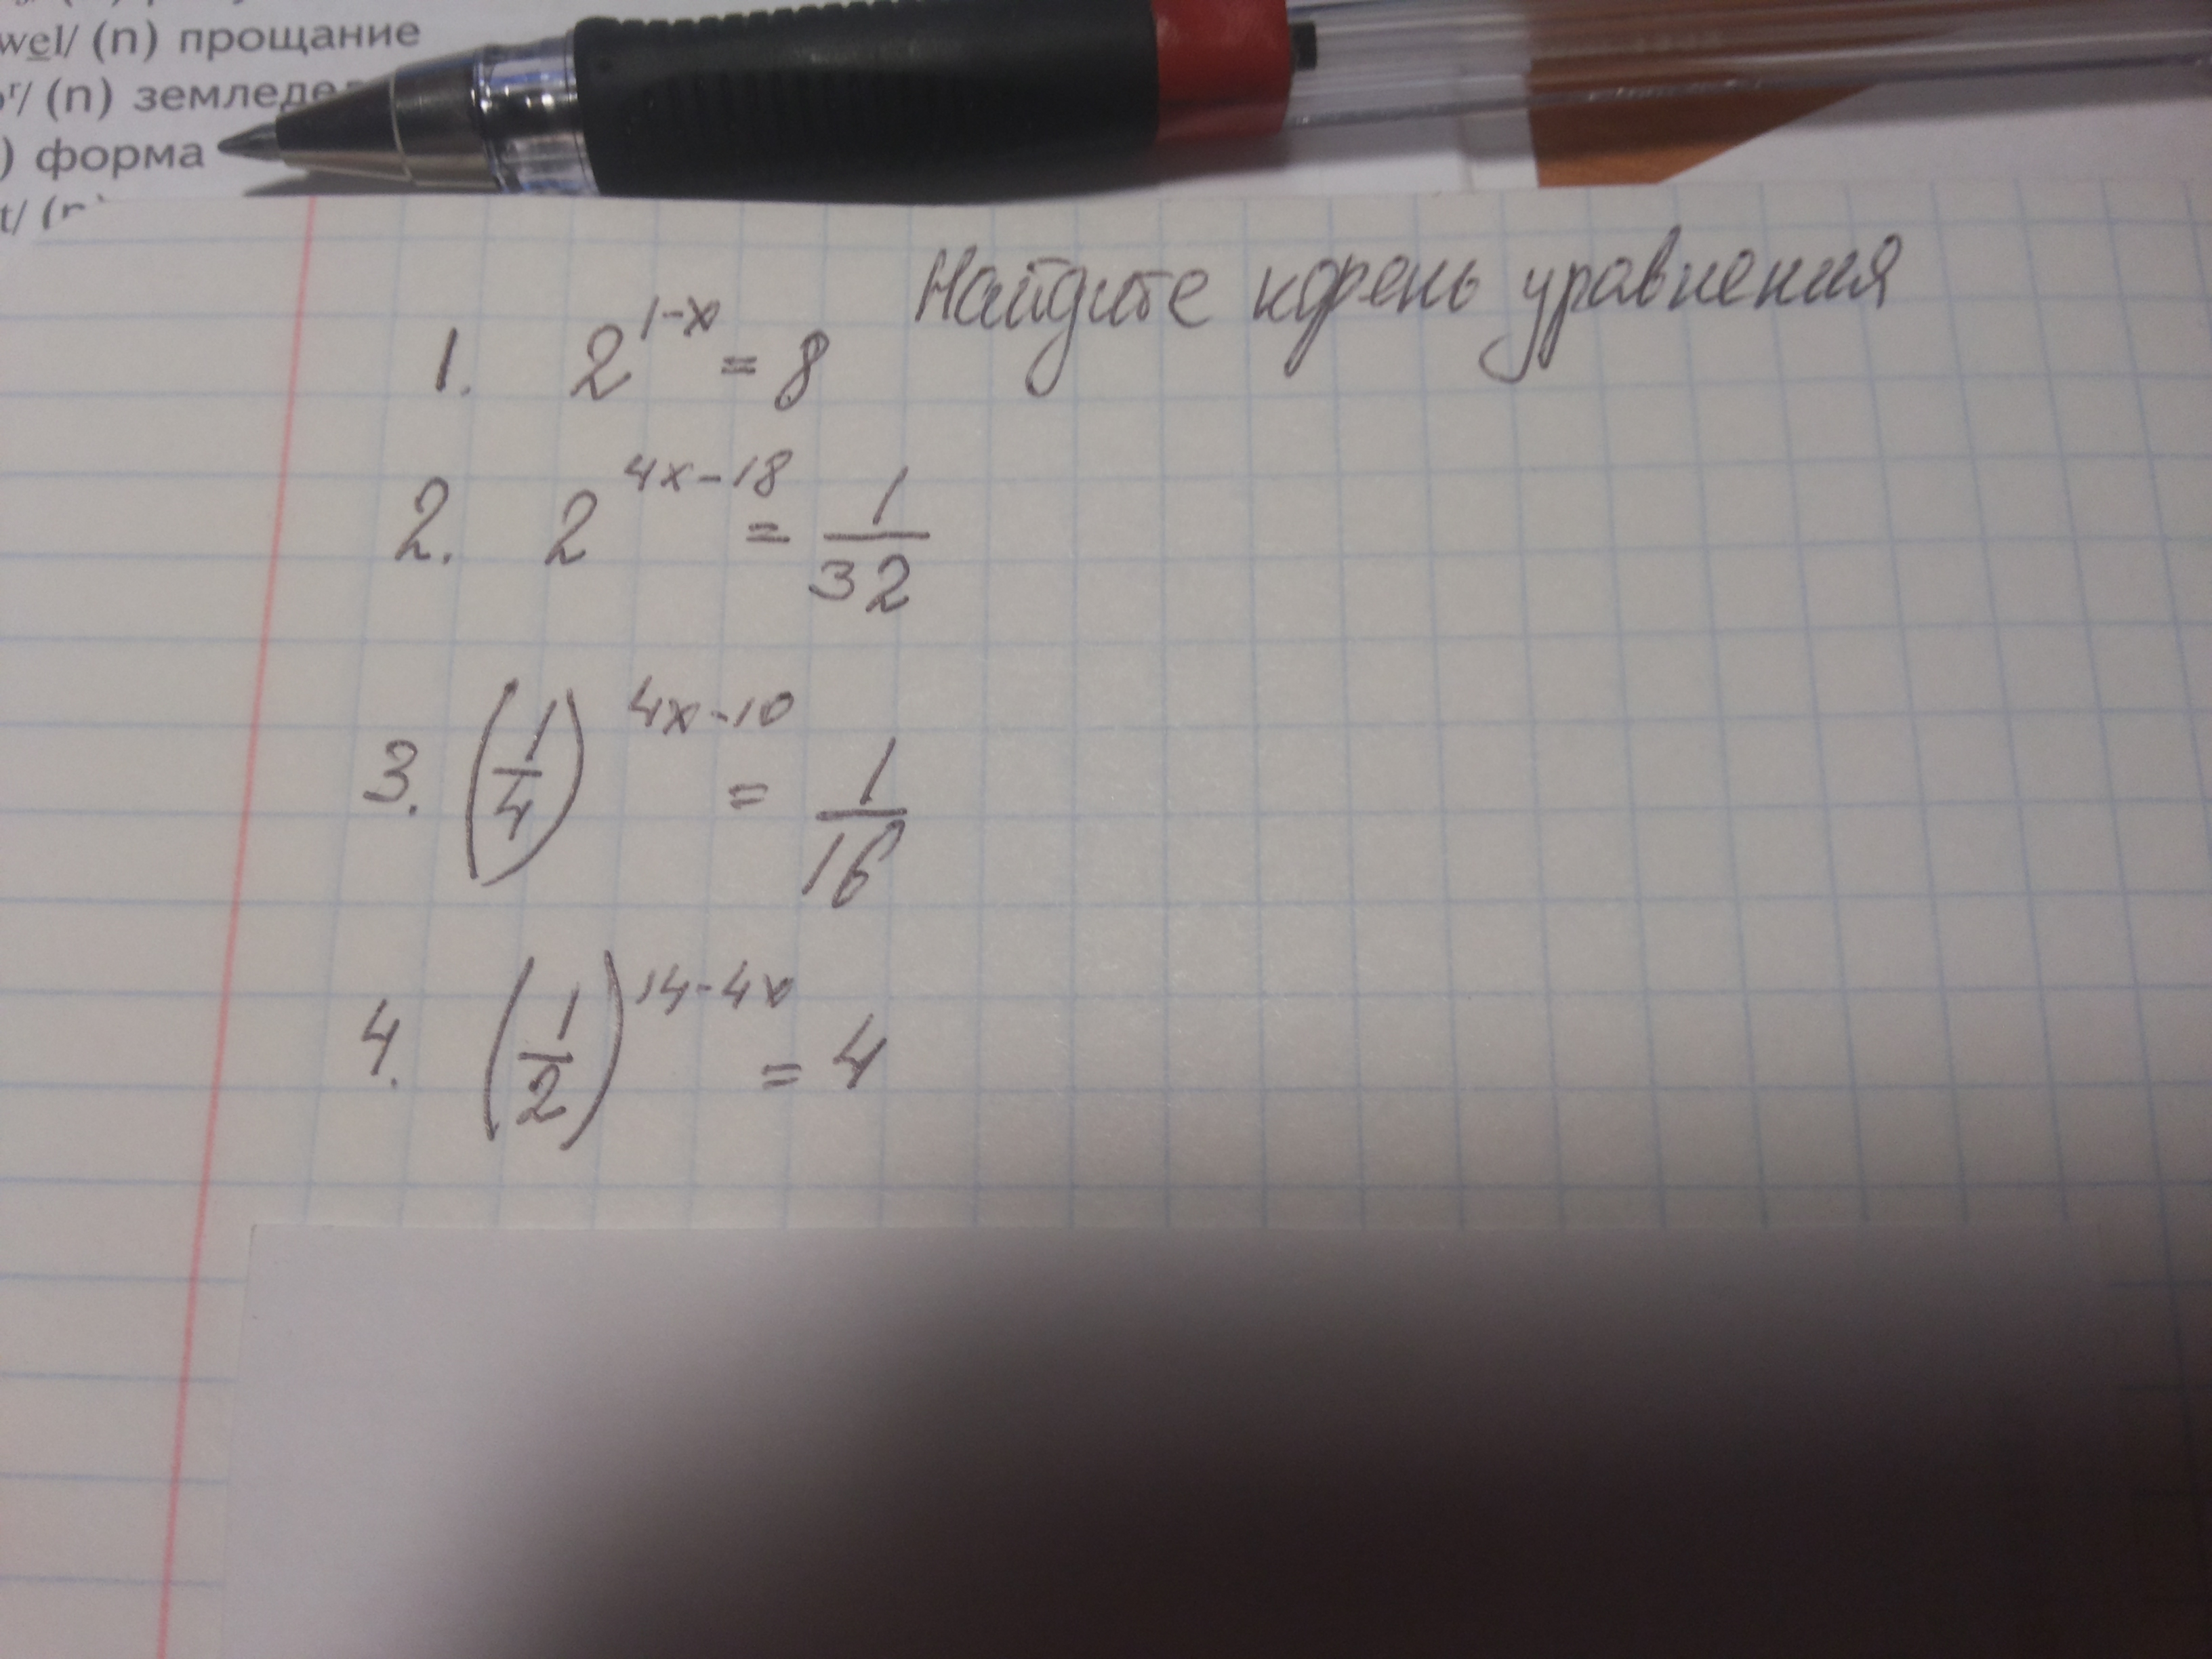 wel/ (n) прощание
r/ (n) земледел
) форма
t/ (n)
Найдите корень уравнения
1. 2^{1-x} = 8
2. 2^{4x-18} = 1/32
3. (1/4)^{4x-10} = 1/16
4. (1/2)^{14-4x} = 4